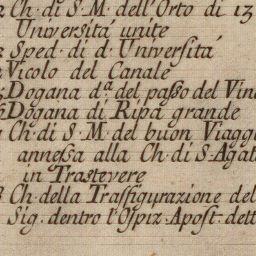 Ch. di S. M. dell'Orto di 13
Università unite
Sped. di d. Università
Vicolo del Canale
Dogana d.ª del passo del Vin
Dogana di Ripa grande
Ch. di S. M. del buon Viagg
annessa alla Ch. di S. Agat
in Trastevere
Ch. della Trasfigurazione del
Sig. dentro l'Ospiz. Apost. dett